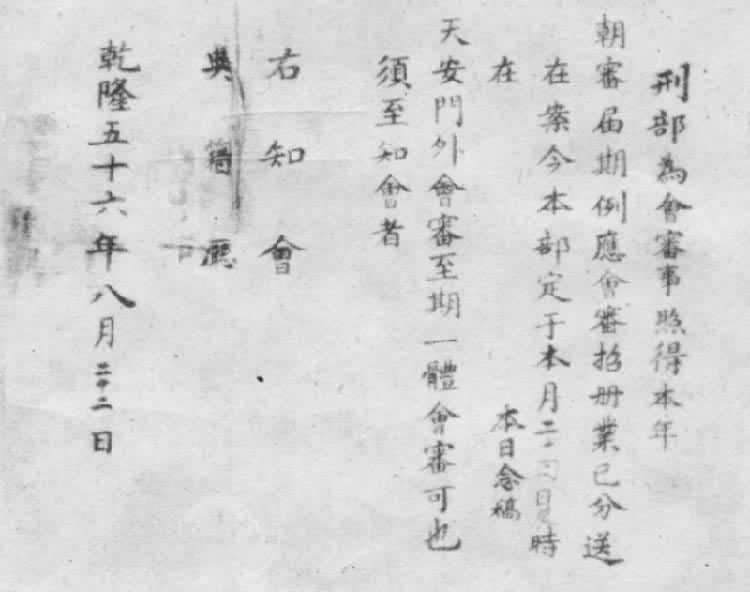 刑部為會審事照得本年
朝審届期例應會審招册業已分送
在案今本部定于本月二十 日 時
在
本日念稿
天安門外會審至期一體會審可也
須至知會者
右知會
吳 廳
乾隆五十六年八月二十二日